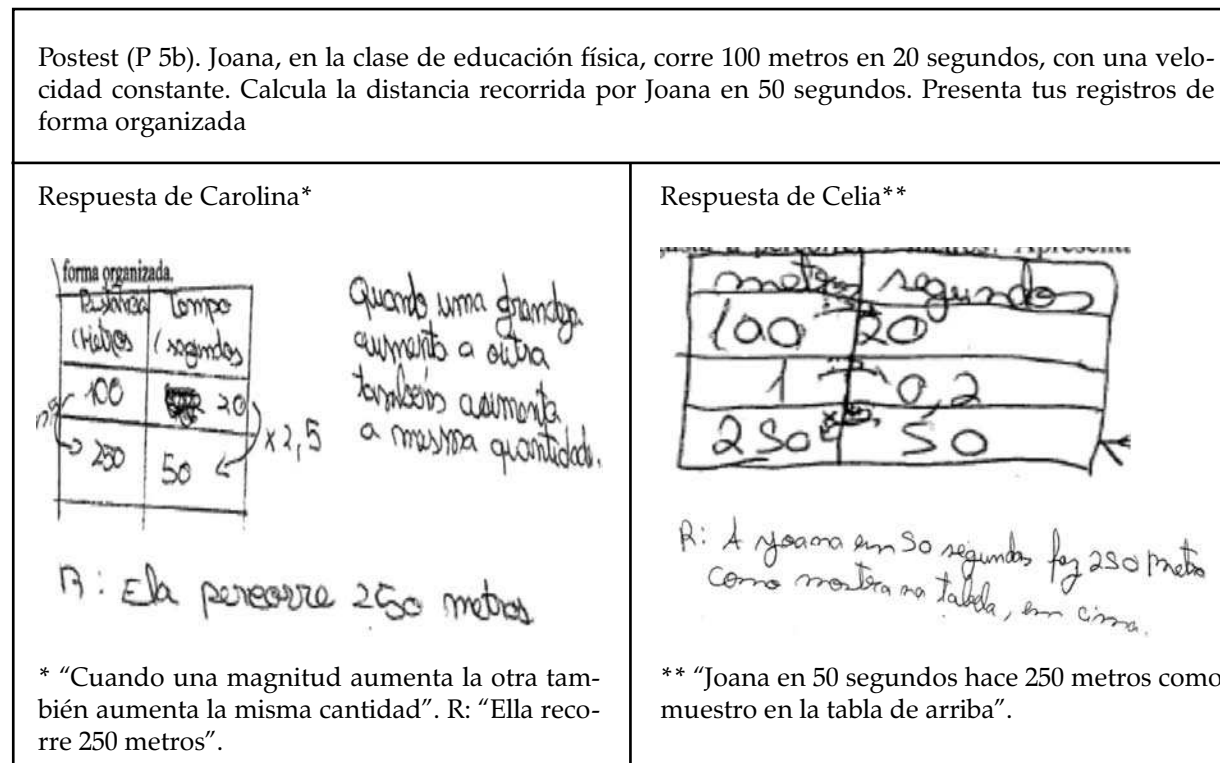 Postest (P 5b). Joana, en la clase de educación física, corre 100 metros en 20 segundos, con una velo-
cidad constante. Calcula la distancia recorrida por Joana en 50 segundos. Presenta tus registros de
forma organizada
Respuesta de Carolina*
forma organizada.
Distância Tempo
(Metros (segundos
100 20
250 50
x 2,5
Quando uma grandeza
aumenta a outra
também aumenta
a mesma quantidade.
R: Ela percorre 250 metros
* “Cuando una magnitud aumenta la otra tam-
bién aumenta la misma cantidad”. R: “Ella reco-
rre 250 metros”.
Respuesta de Celia**
metros segundos
100 20
1 0,2
250 50
R: A Joana em 50 segundos fez 250 metro
como mostra na tabela, em cima.
** “Joana en 50 segundos hace 250 metros como
muestro en la tabla de arriba”.